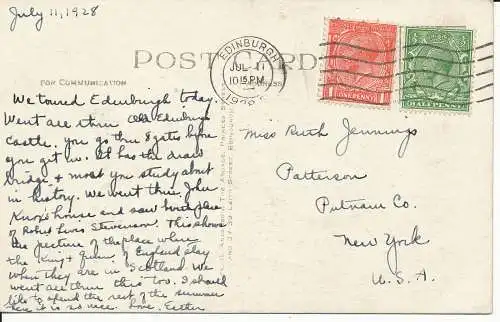 July 11, 1928
POST CARD
FOR COMMUNICATION
EDINBURGH
JUL 11
10:15 PM
1928
ONE PENNY
HALFPENNY
We toured Edinburgh today.
Went all thru Old Edinburgh
Castle. You go thru 7 gates before
you get in. It has the draw
bridge & most you study about
in history. We went thru John
Knox's house and saw
of Robert Louis Stevenson. This shows
the picture of the place where
the King & Queen of England stay
when they are in Scotland. We
went all thru this too. I should
like to spend the rest of the summer
here it is so nice. Love, Esther
Miss Ruth Jennings
Patterson
Putnam Co.
New York
U.S.A.